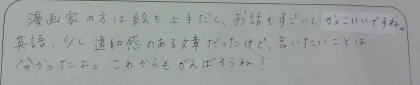 漫画家の方は絵も上手だし、お話もすごいしかっこいいですね。
英語、少し違和感のある文章だったけど、言いたいことは
分かったよ。これからもがんばろうね!